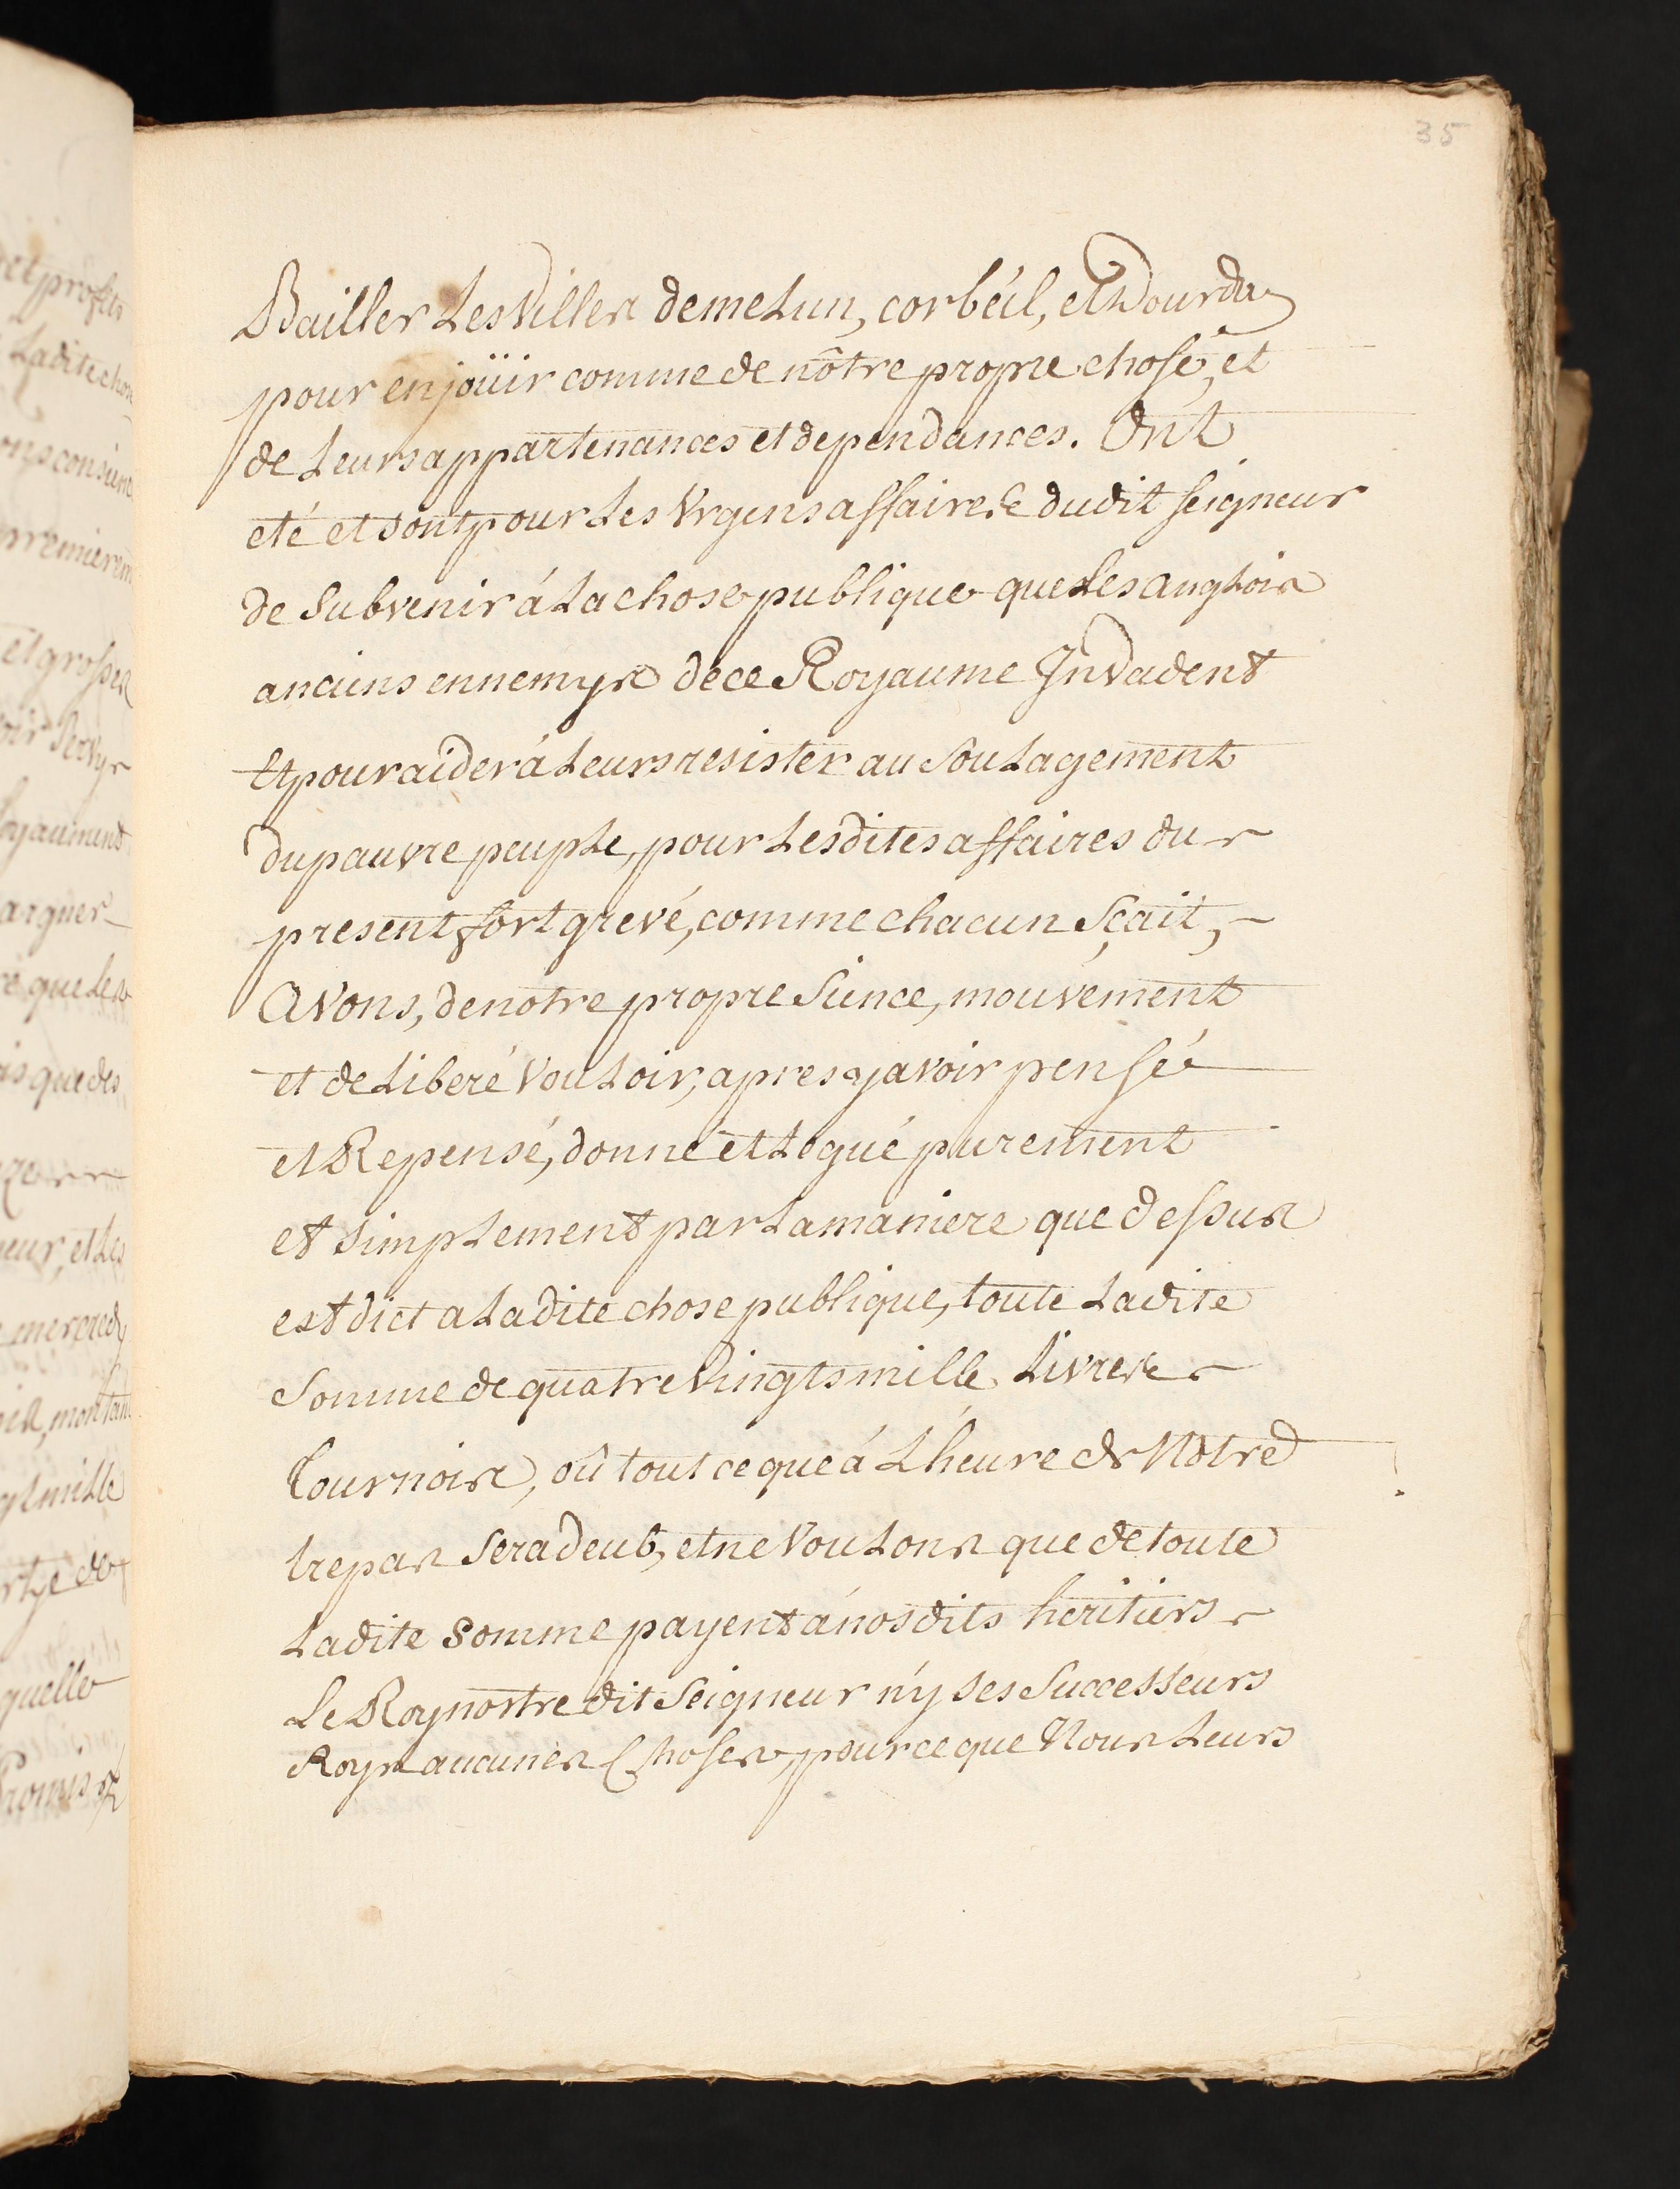 35
Bailler Les Villes de meLun, corbéil, et Dourdan
pour en joüir comme de nôtre propre chose, et
de Leurs appartenances et dependances. Ont
eté et sont pour Les Vrgens affaires dudit seigneur
de Subvenir á La chose publique que Les anglois
anciens ennemys de ce Royaume Jnvadent
Et pour aider á Leurs resister au SouLagement
du pauvre peupLe, pour Lesdites affaires du
present fort grevé, comme chacun Sçait,
avons, de notre propre Sience, mouvement
et deLiberé VouLoir, apres y avoir pensé
et Repensé, donné et Legué purement
et simpLement par La maniere que dessus
est dict a Ladite chose publique, toute Ladite
Somme de quatre Vingts mille Livres
Tournois, où tout ce que á L'heure de Notre
trepas Sera deub, et ne VouLons que de toute
Ladite Somme payent á nosdits heritiers
Le Roy nostre dit Seigneur n'y ses Successeurs
Roys aucunes Choses, pour ce que Nous Leurs